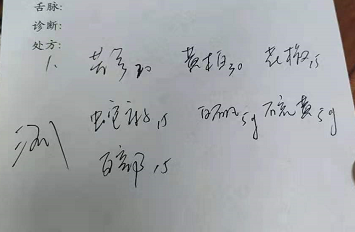 舌脉:
诊断:
处方:
1. 苦参30 黄柏30 花椒15
蛇床子15 白矾5g 硫黄5g
百部15